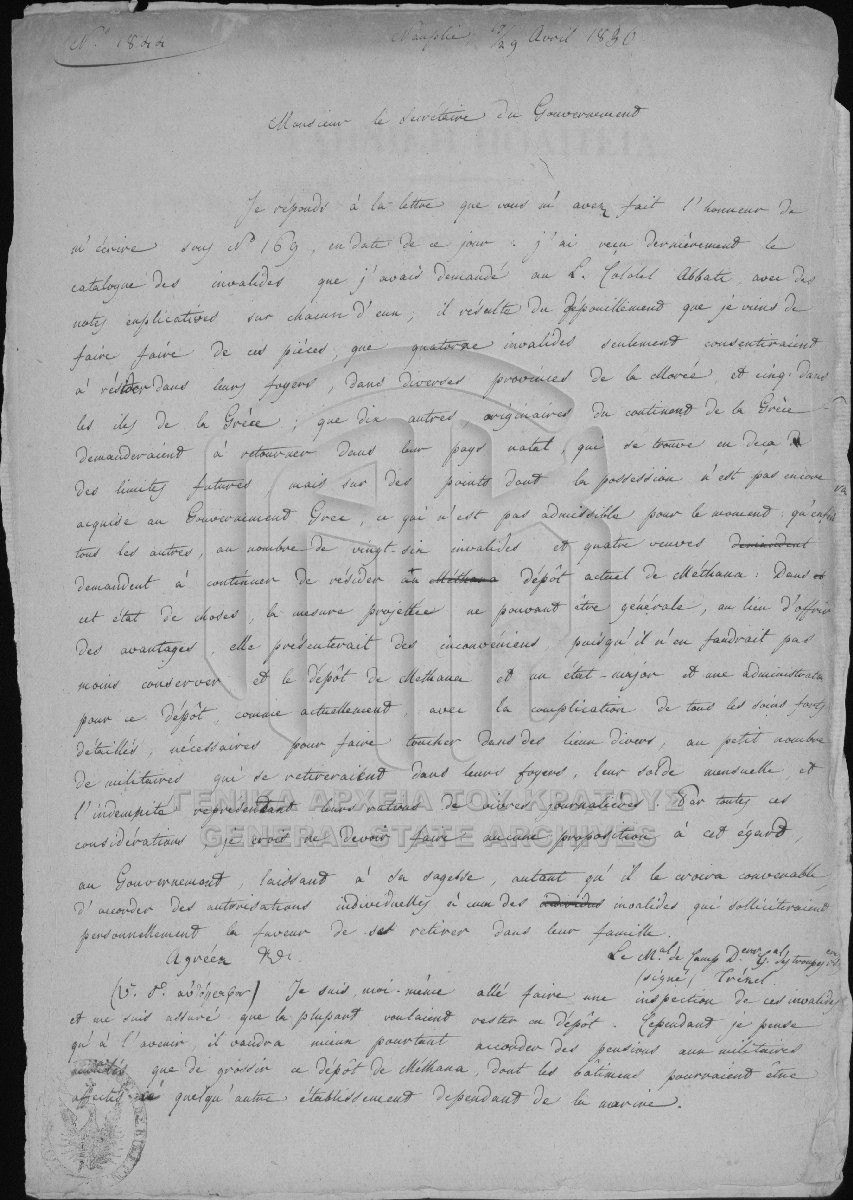 N.º 1844
Nauplie, 17/29 Avril 1830
Monsieur le Secrétaire du Gouvernement
Je réponds à la lettre que vous m'avez fait l'honneur de
m'écrire sous Nº 169, en date de ce jour : j'ai reçu dernièrement le
catalogue des invalides que j'avais demandé au L. Colonel Abbati, avec des
notes explicatives sur chacun d'eux; il résulte du dépouillement que je viens de
faire faire de ces pièces, que quatorze invalides seulement consentiraient
à rester dans leurs foyers, dans diverses provinces de la Morée, et cinq dans
les iles de la Grèce; que dix autres originaires du continent de la Grèce
demanderaient à retourner dans leur pays natal, qui se trouve en deçà
des limites futures mais sur des points dont la possession n'est pas encore
acquise au Gouvernement Grec, ce qui n'est pas admissible pour le moment : qu'enfin
tous les autres, au nombre de vingt-six invalides et quatre veuves demandent
demandent à continuer de résider au Méthana dépôt actuel de Méthana : Dans
cet état de choses, la mesure projettée ne pouvant être générale, au lieu d'offrir
des avantages, elle présenterait des inconvéniens, puisqu'il n'en faudrait pas
moins conserver et le dépôt de Methana et un état-major et une administration
pour ce dépôt, comme actuellement, avec la complication de tous les soins forts
détaillés, nécessaires pour faire toucher dans des lieux divers, au petit nombre
de militaires qui se retireraient dans leurs foyers, leur solde mensuelle, et
l'indemnité représentant leurs rations de vivres journalières. Par toutes ces
considérations je crois ne devoir faire aucune proposition à cet égard,
au Gouvernement, laissant à sa sagesse, autant qu'il le croira convenable,
d'accorder des autorisations individuelles à ceux des individus invalides qui solliciteraient
personnellement la faveur de se retirer dans leur famille.
Agréez &c.
Le M.al de Camp D.eur G.al des troupes
(signé) Trézel
Je suis moi-même allé faire une inspection de ces invalides
et me suis assuré que la plupart voulaient rester en dépôt. Cependant je pense
qu'à l'avenir il vaudra mieux pourtant accorder des pensions aux militaires
que de grossir ce dépôt de Méthana, dont les batimens pourraient etre
affectés à quelqu'autre établissement dependant de la marine.
ΓΕΝΙΚΑ ΑΡΧΕΙΑ ΤΟΥ ΚΡΑΤΟΥΣ
GENERAL STATE ARCHIVES